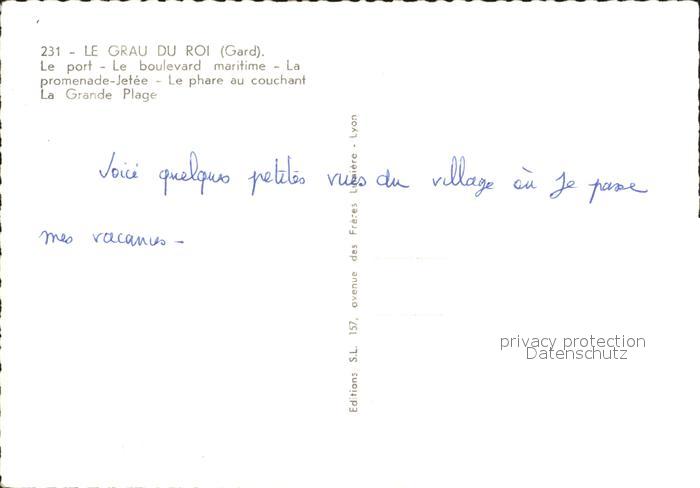 231 - LE GRAU DU ROI (Gard).
Le port - Le boulevard maritime - La
promenade-Jetée - Le phare au couchant
La Grande Plage
Voici quelques petites vues du village où je passe
mes vacances -
Editions S.L. 157, avenue des Frères Lumière - Lyon
privacy protection
Datenschutz